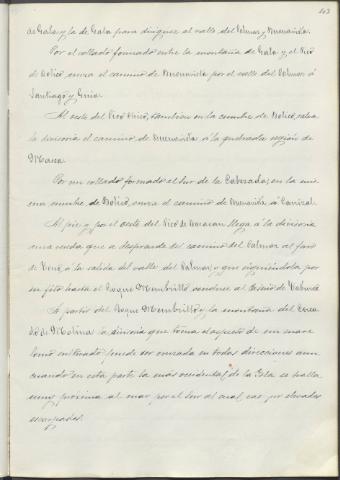 103
de Gala y la de Gala para dirigirse al valle del Palmar y Buenavista.
Por el collado formado entre la montaña de Gala y el Pico
de Bolico, cruza el camino de Buenavista por el valle del Palmar á
Santiago y Guia.
Al oeste del Pico, tambien en la cumbre de Bolico, salva
la divisoria el camino de Buenavista á la quebrada region de
Masca.
Por un collado formado al Sur de la Cabezada, en la mis
ma cumbre de Bolico, cruza el camino de Buenavista á Carrizal.
Al pie y por el oeste del Pico de Baracan llega á la divisoria
una vereda que se desprende del camino del Palmar al faro
de Teno, á la salida del valle del Palmar, y que siguiéndola por
su filo hasta el Roque Membrillo conduce al Caserio de
A partir del Roque Membrillo y la montaña del Cerca
do de Molina la divisoria que toma el aspecto de un ancho
lomo cultivado puede ser cruzada en todas direcciones aun
cuando en esta parte la más occidental de la Isla se halla
muy próxima al mar por el Sur al cual cae por elevados
escarpados.